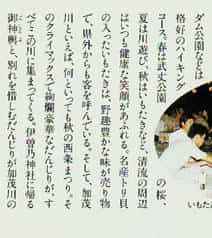 ダム公園などは
格好のハイキング
コース。春は武丈公園の桜、
夏は川遊び、秋はいもたきなど、清流の周辺
はいつも健康な笑顔があふれる。名産トリ貝
の入ったいもたきは、野趣豊かな味が売り物
で、県外からも客を呼んでいる。そして、加茂
川といえば、何といっても秋の西条まつり。そ
のクライマックスで絢爛豪華なだんじりが、す
べてこの川に集まってくる。伊曽乃神社に帰る
御神輿と、別れを惜しむだんじりが加茂川の
いもた